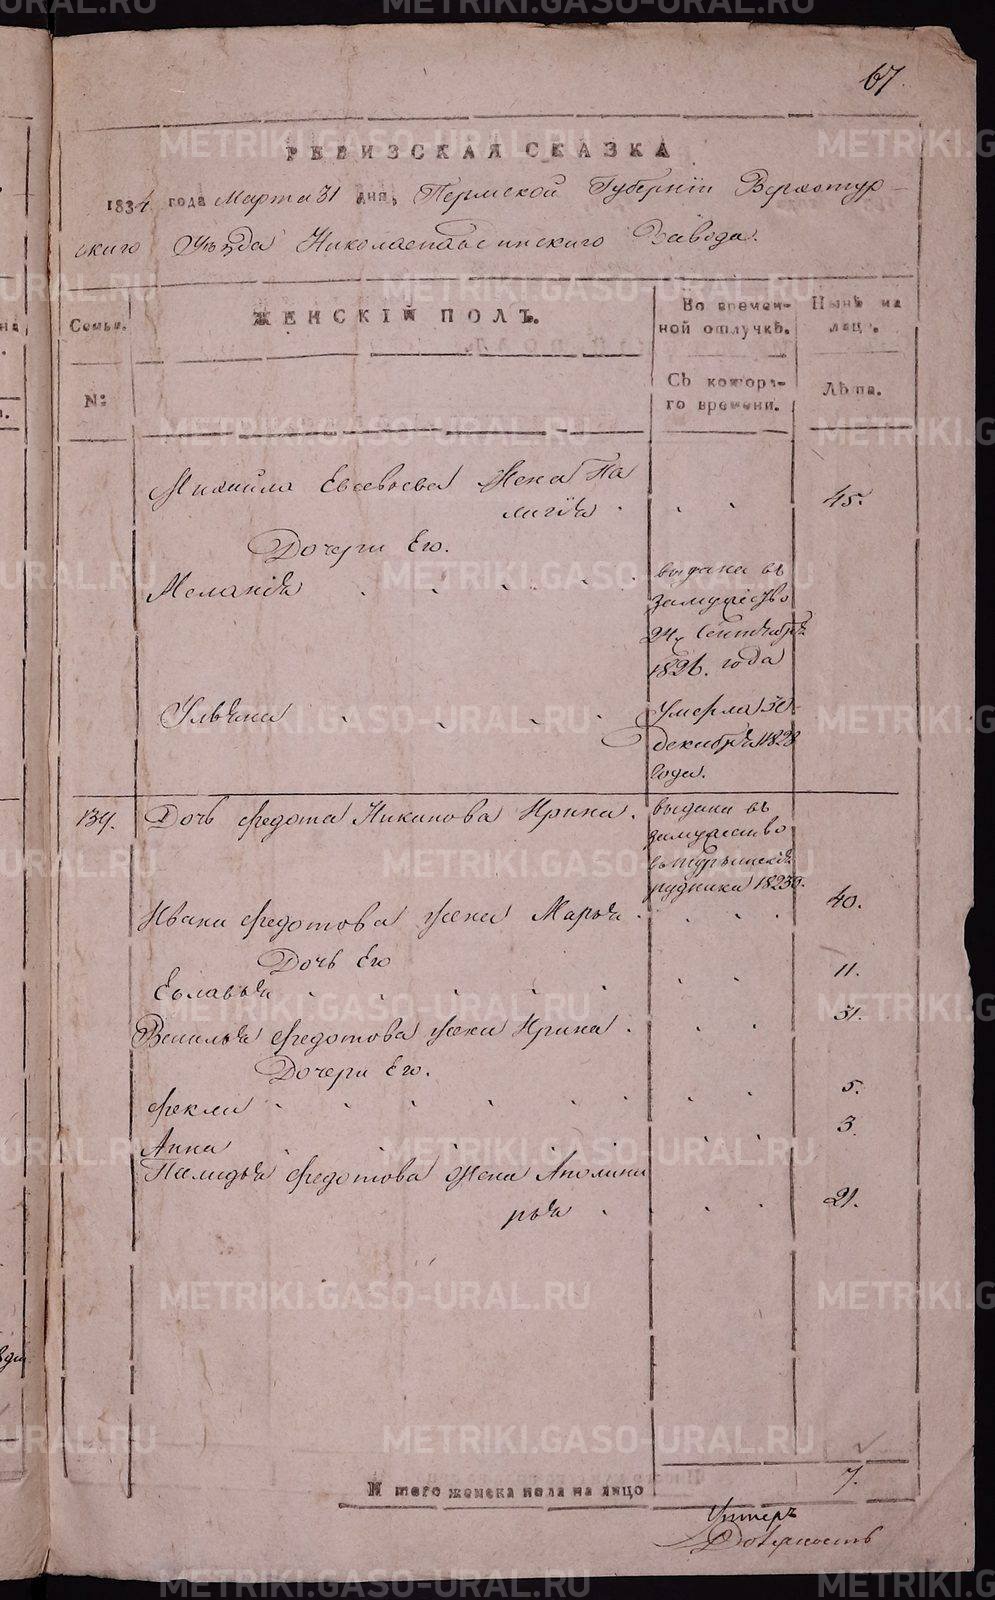 67.
РЕВИЗСКАЯ СКАЗКА
1834 года Марта 31 дня, Пермской Губернïи Верхотур-
скаго Уѣзда Николаепавдинскаго Завода.
Семьи.
ЖЕНСКІЙ ПОЛЪ.
Во времен-
ной отлучкѣ.
Нынѣ на
лицо.
№:
Съ котора-
го времени.
Лѣта.
Михайла Евсевьева Жена Па
лагiя 45.
Дочери Его.
Меланiя выдана въ
замужство
24. Сентября
1826. года
Ульяна Умерла 30
декабря 1828
года.
139. Дочь Федота Никинова Ирина. выдана въ
замужство
рудника 1823го.
Ивана Федотова жена Марья 40.
Дочь Его
Евлавья 11.
Василья Федотова жена Ирина. 31.
Дочери Его.
Фекла 5.
Анна 3.
Федотова Жена Аполина
рья 21.
Итого женска пола на лицо 7.
METRIKI.GASO-URAL.RU